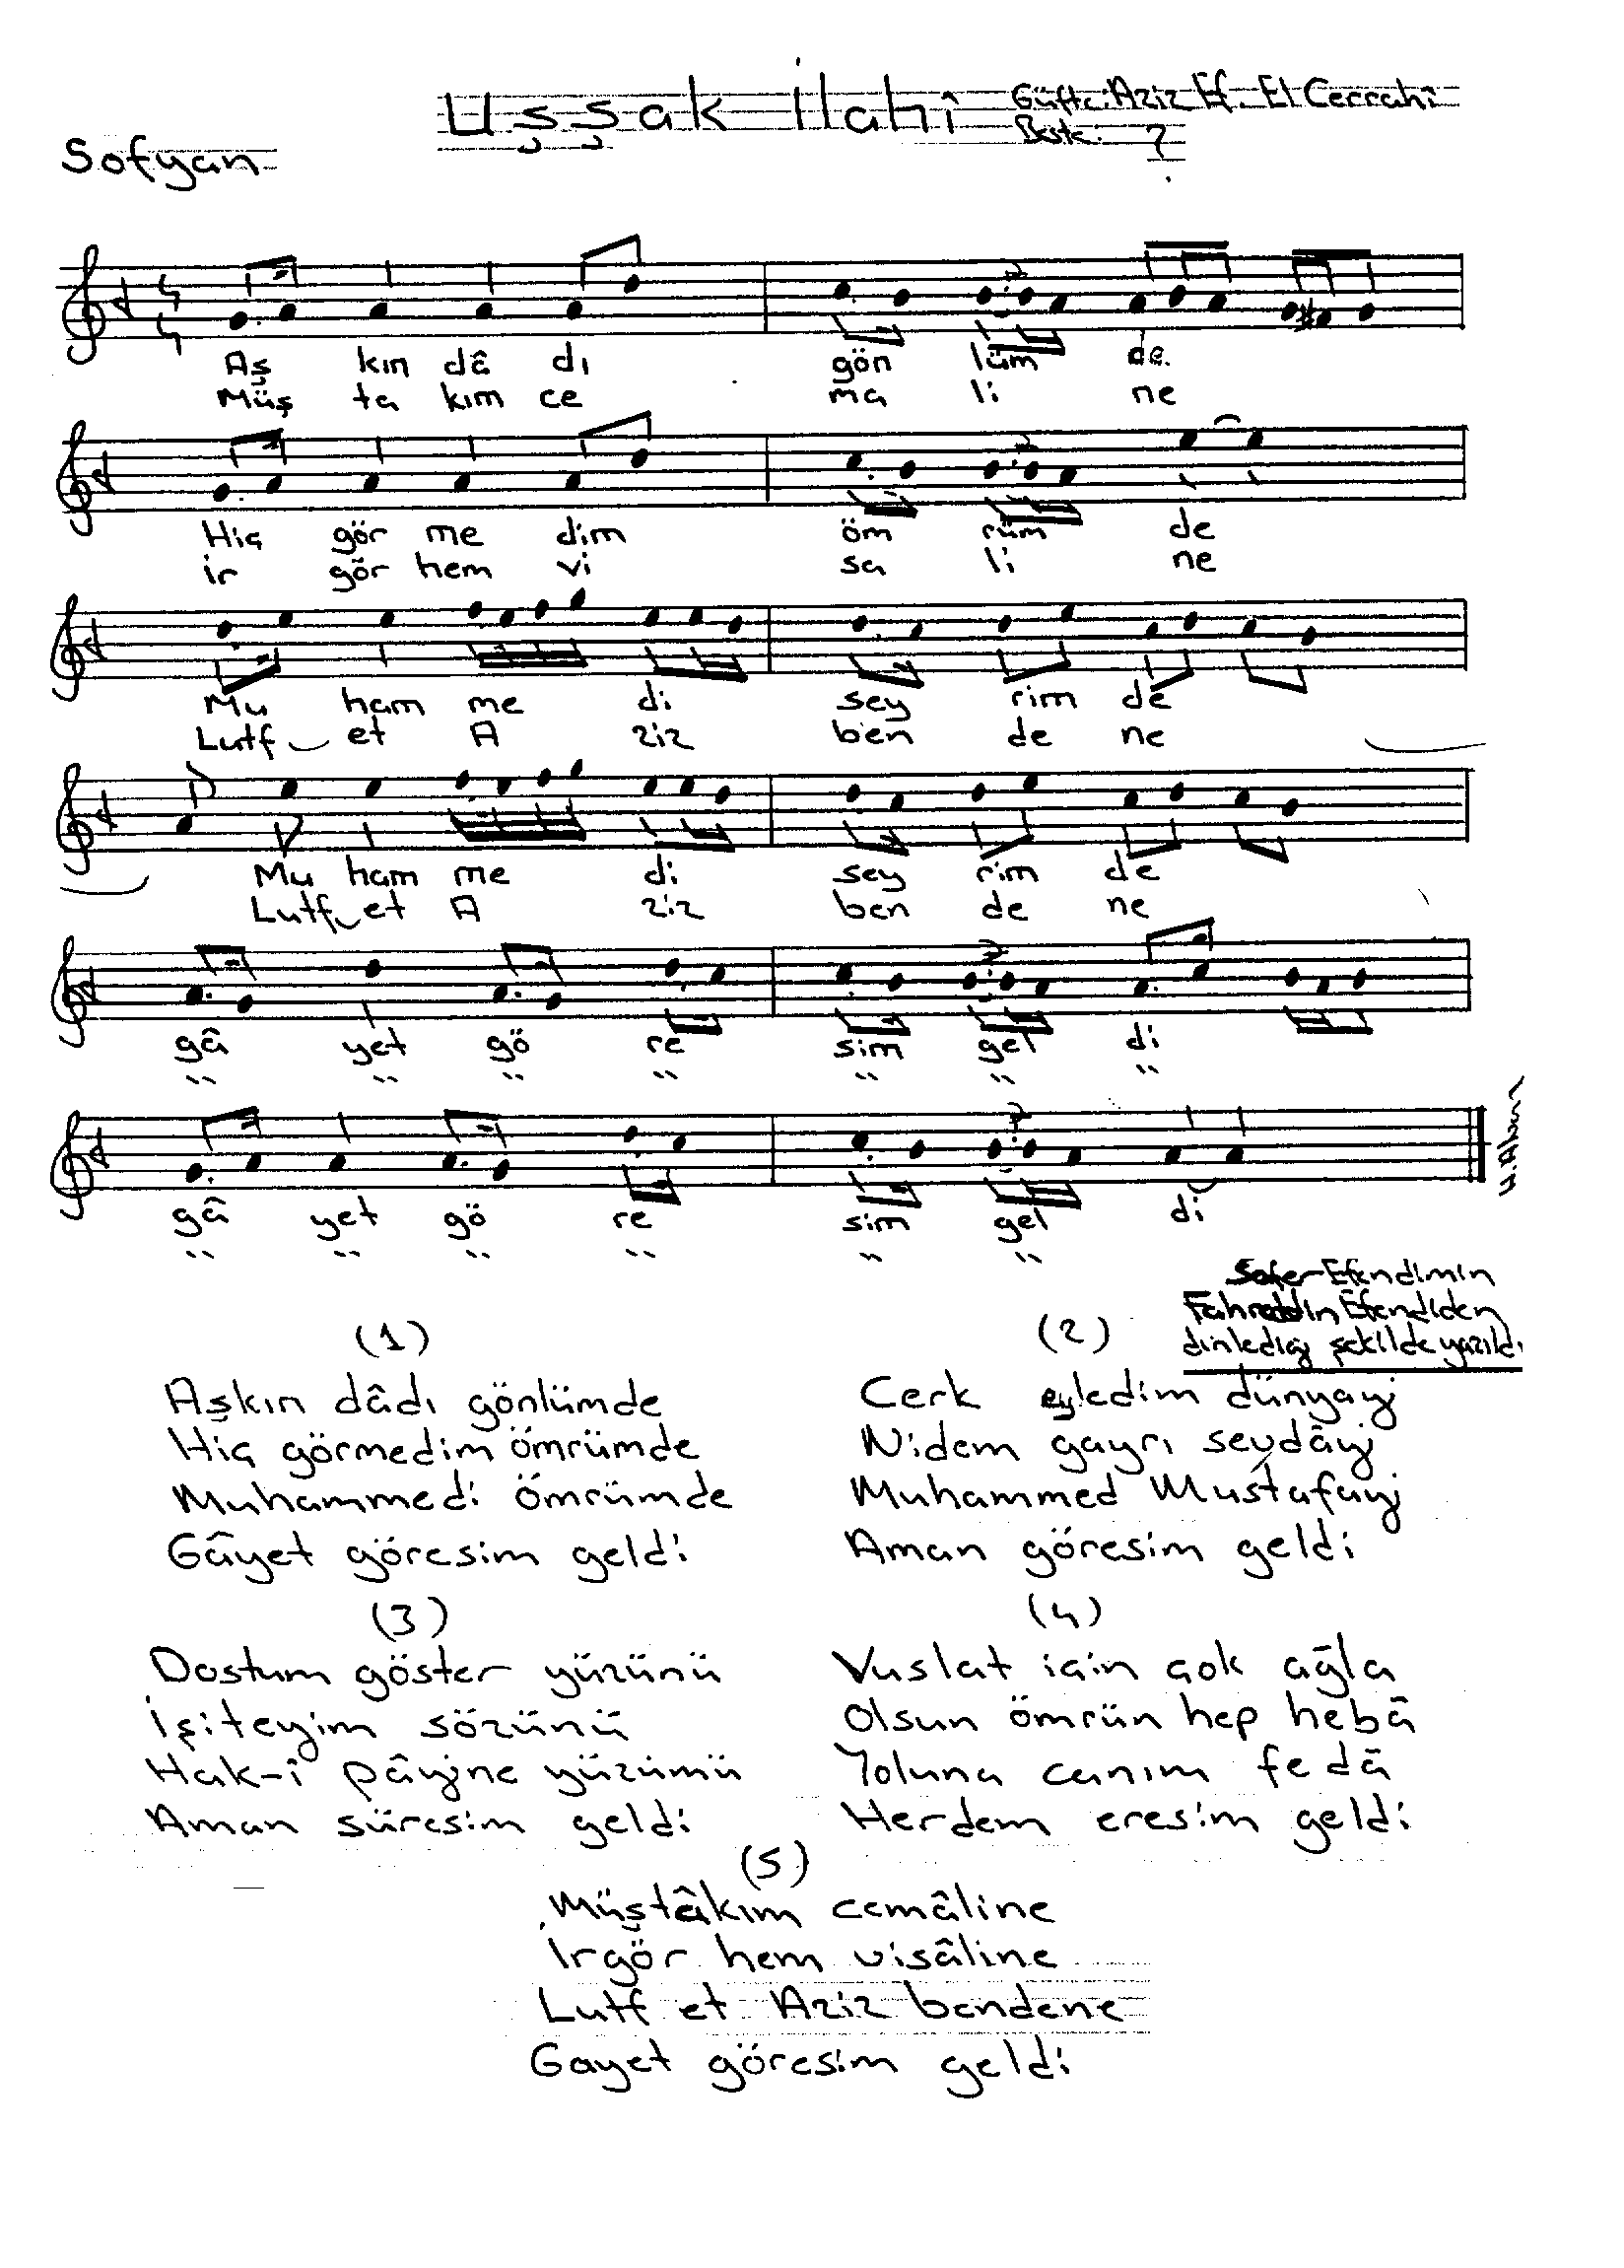 Uşşak İlahî
Güfte: Aziz Ef. El Cerrahî
Beste: ?
Sofyan
Aş kın dâ dı gön lüm de
Müş ta kım ce ma li ne
Hiç gör me dim öm rüm de
ir gör hem vi sa li ne
Mu ham me di sey rim de
Lutf et A ziz ben de ne
Mu ham me di sey rim de
Lutf et A ziz ben de ne
gâ yet gö re sim gel di
" " " " " " "
gâ yet gö re sim gel di
" " " " " "
Sefer Efendimin
Fahreddin Efendiden
dinlediği şekilde yazıldı
(1)
Aşkın dâdı gönlümde
Hiç görmedim ömrümde
Muhammedi ömrümde
Gâyet göresim geldi
(2)
Cerk eyledim dünyayı
Nidem gayrı sevdâyı
Muhammed Mustafayı
Aman göresim geldi
(3)
Dostum göster yüzünü
İşiteyim sözünü
Hak-î pâyine yüzümü
Aman süresim geldi
(4)
Vuslat için çok ağla
Olsun ömrün hep hebâ
Yoluna canım fedâ
Herdem eresim geldi
(5)
Müştâkım cemâline
İrgör hem visâline
Lutf et Aziz bendene
Gayet göresim geldi